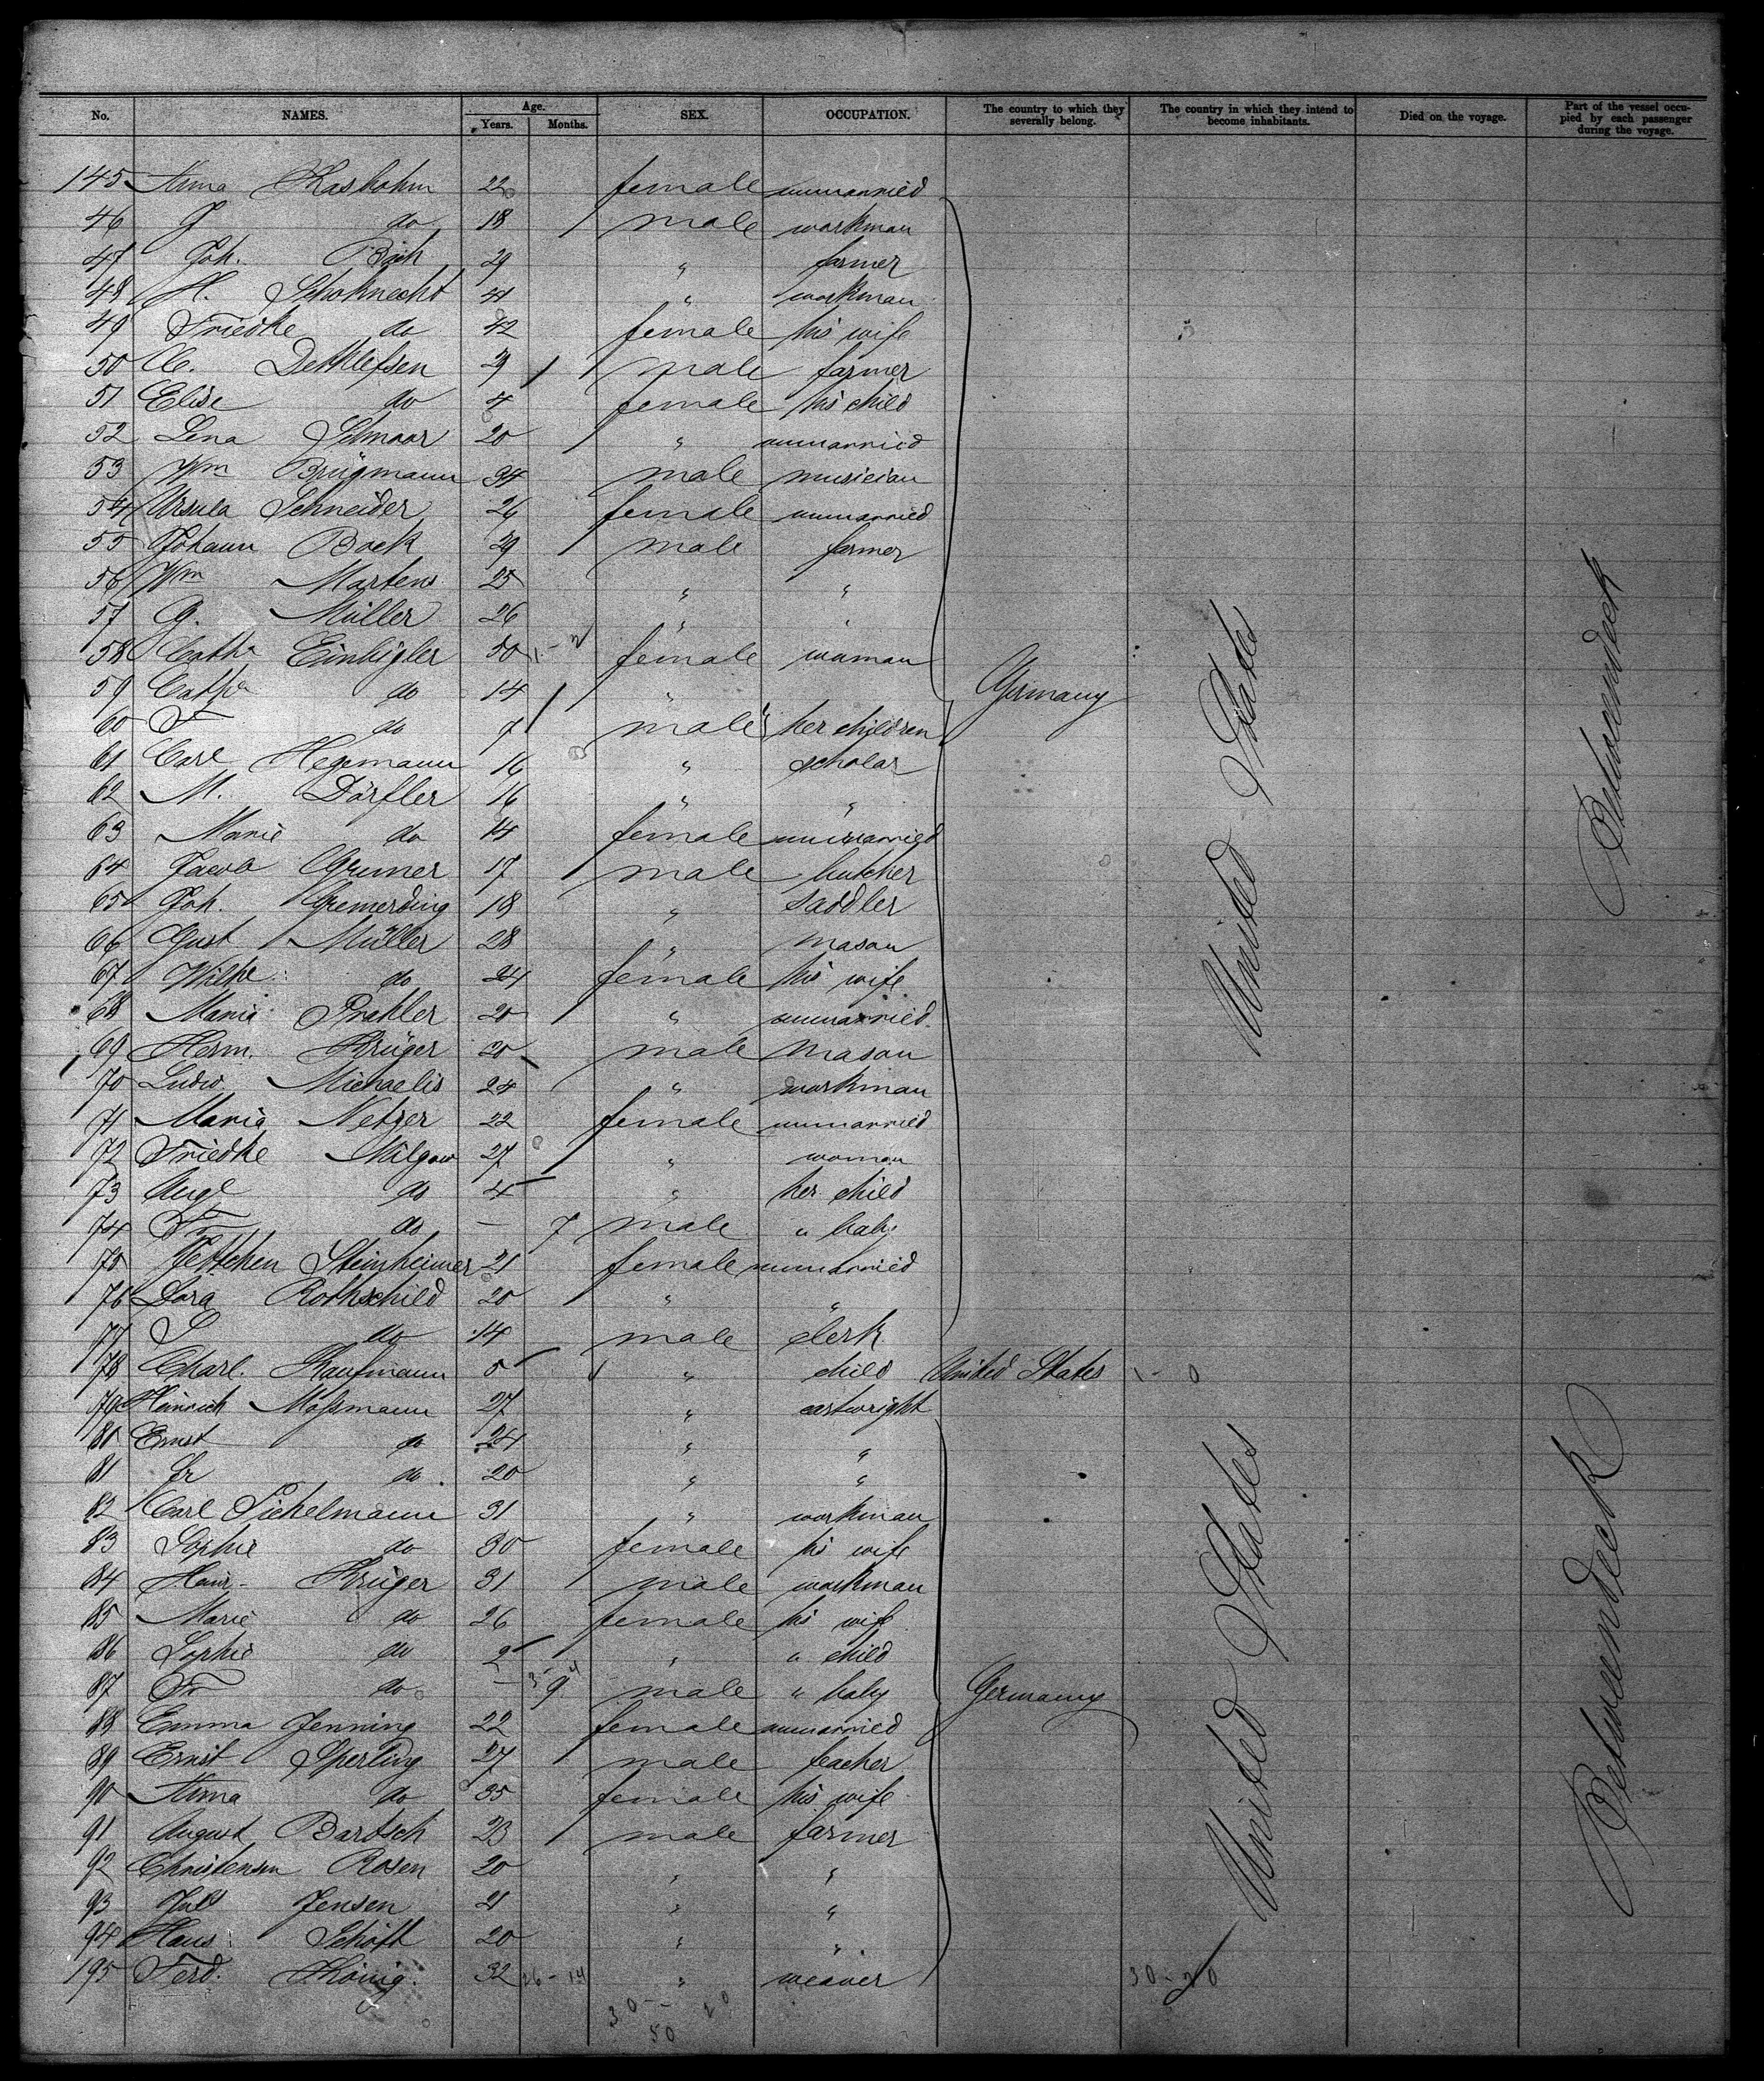 No. NAMES. Age. Years. Months. SEX. OCCUPATION. The country to which they severally belong. The country in which they intend to become inhabitants. Died on the voyage. Part of the vessel occupied by each passenger during the voyage.
145 Anna Kashohm 22 female unmarried
46 J do 18 male workman
47 Joh. 29 " farmer
48 H. Schoknecht 41 " workman
49 Friedke do 42 female his wife
50 C. Dethlefsen 29 male farmer
51 Elise do 4 female his child
52 Lena Schnoor 20 " unmarried
53 Wm Brügmann 34 male musician
54 Ursula Schneider 26 female unmarried
55 Johann Bock 29 male farmer
56 Wm Martens 25 " "
57 G. Müller 26 " "
58 Catha Einhigler 50 female woman
59 Catha do 14 " Germany
60 F do 7 male her children
61 Carl Hegemann 16 " scholar
62 M. Dörfler 16 " "
63 Marie do 14 female unmarried
64 Jacob Grumer 17 male butcher
65 Joh. Gremerding 18 " saddler
66 Gust Müller 28 " mason
67 Wilhe do 24 female his wife
68 Maria Prahler 20 " unmarried
69 Herm. Krüger 20 male mason
70 Ludw. Michaelis 24 " workman
71 Maria Netzer 22 female unmarried
72 Friedke Milgow 27 " woman
73 Aug do 4 " her child
74 Fr do — 7 male " baby
75 Jettchen Steinheimer 21 female unmarried
76 Dora Rothschild 20 " "
77 S do 14 male clerk
78 Charl. Kaufmann 5 " child United States 1 - 0
79 Heinrich Moßmann 27 " cartwright
80 Ernst do 24 " "
81 Fr do 20 " "
82 Carl Pickelmann 31 " workman
83 Sophie do 30 female his wife
84 Heinr. Krüger 31 male workman
85 Marie do 26 female his wife
86 Sophie do 2 " " child
87 Fr do — 9 male " baby Germany
88 Emma Jenning 22 female unmarried
89 Ernst Sperling 27 male teacher
90 Anna do 35 female his wife
91 August Bartsch 23 male farmer
92 Christensen Rosen 20 " "
93 Juls Jensen 21 " "
94 Hans Schöft 20 " "
195 Ferd. König. 32 26 - 14 " weaver 30 - 20
30 - 20
50
United States
Betweendeck
United States
Betweendeck